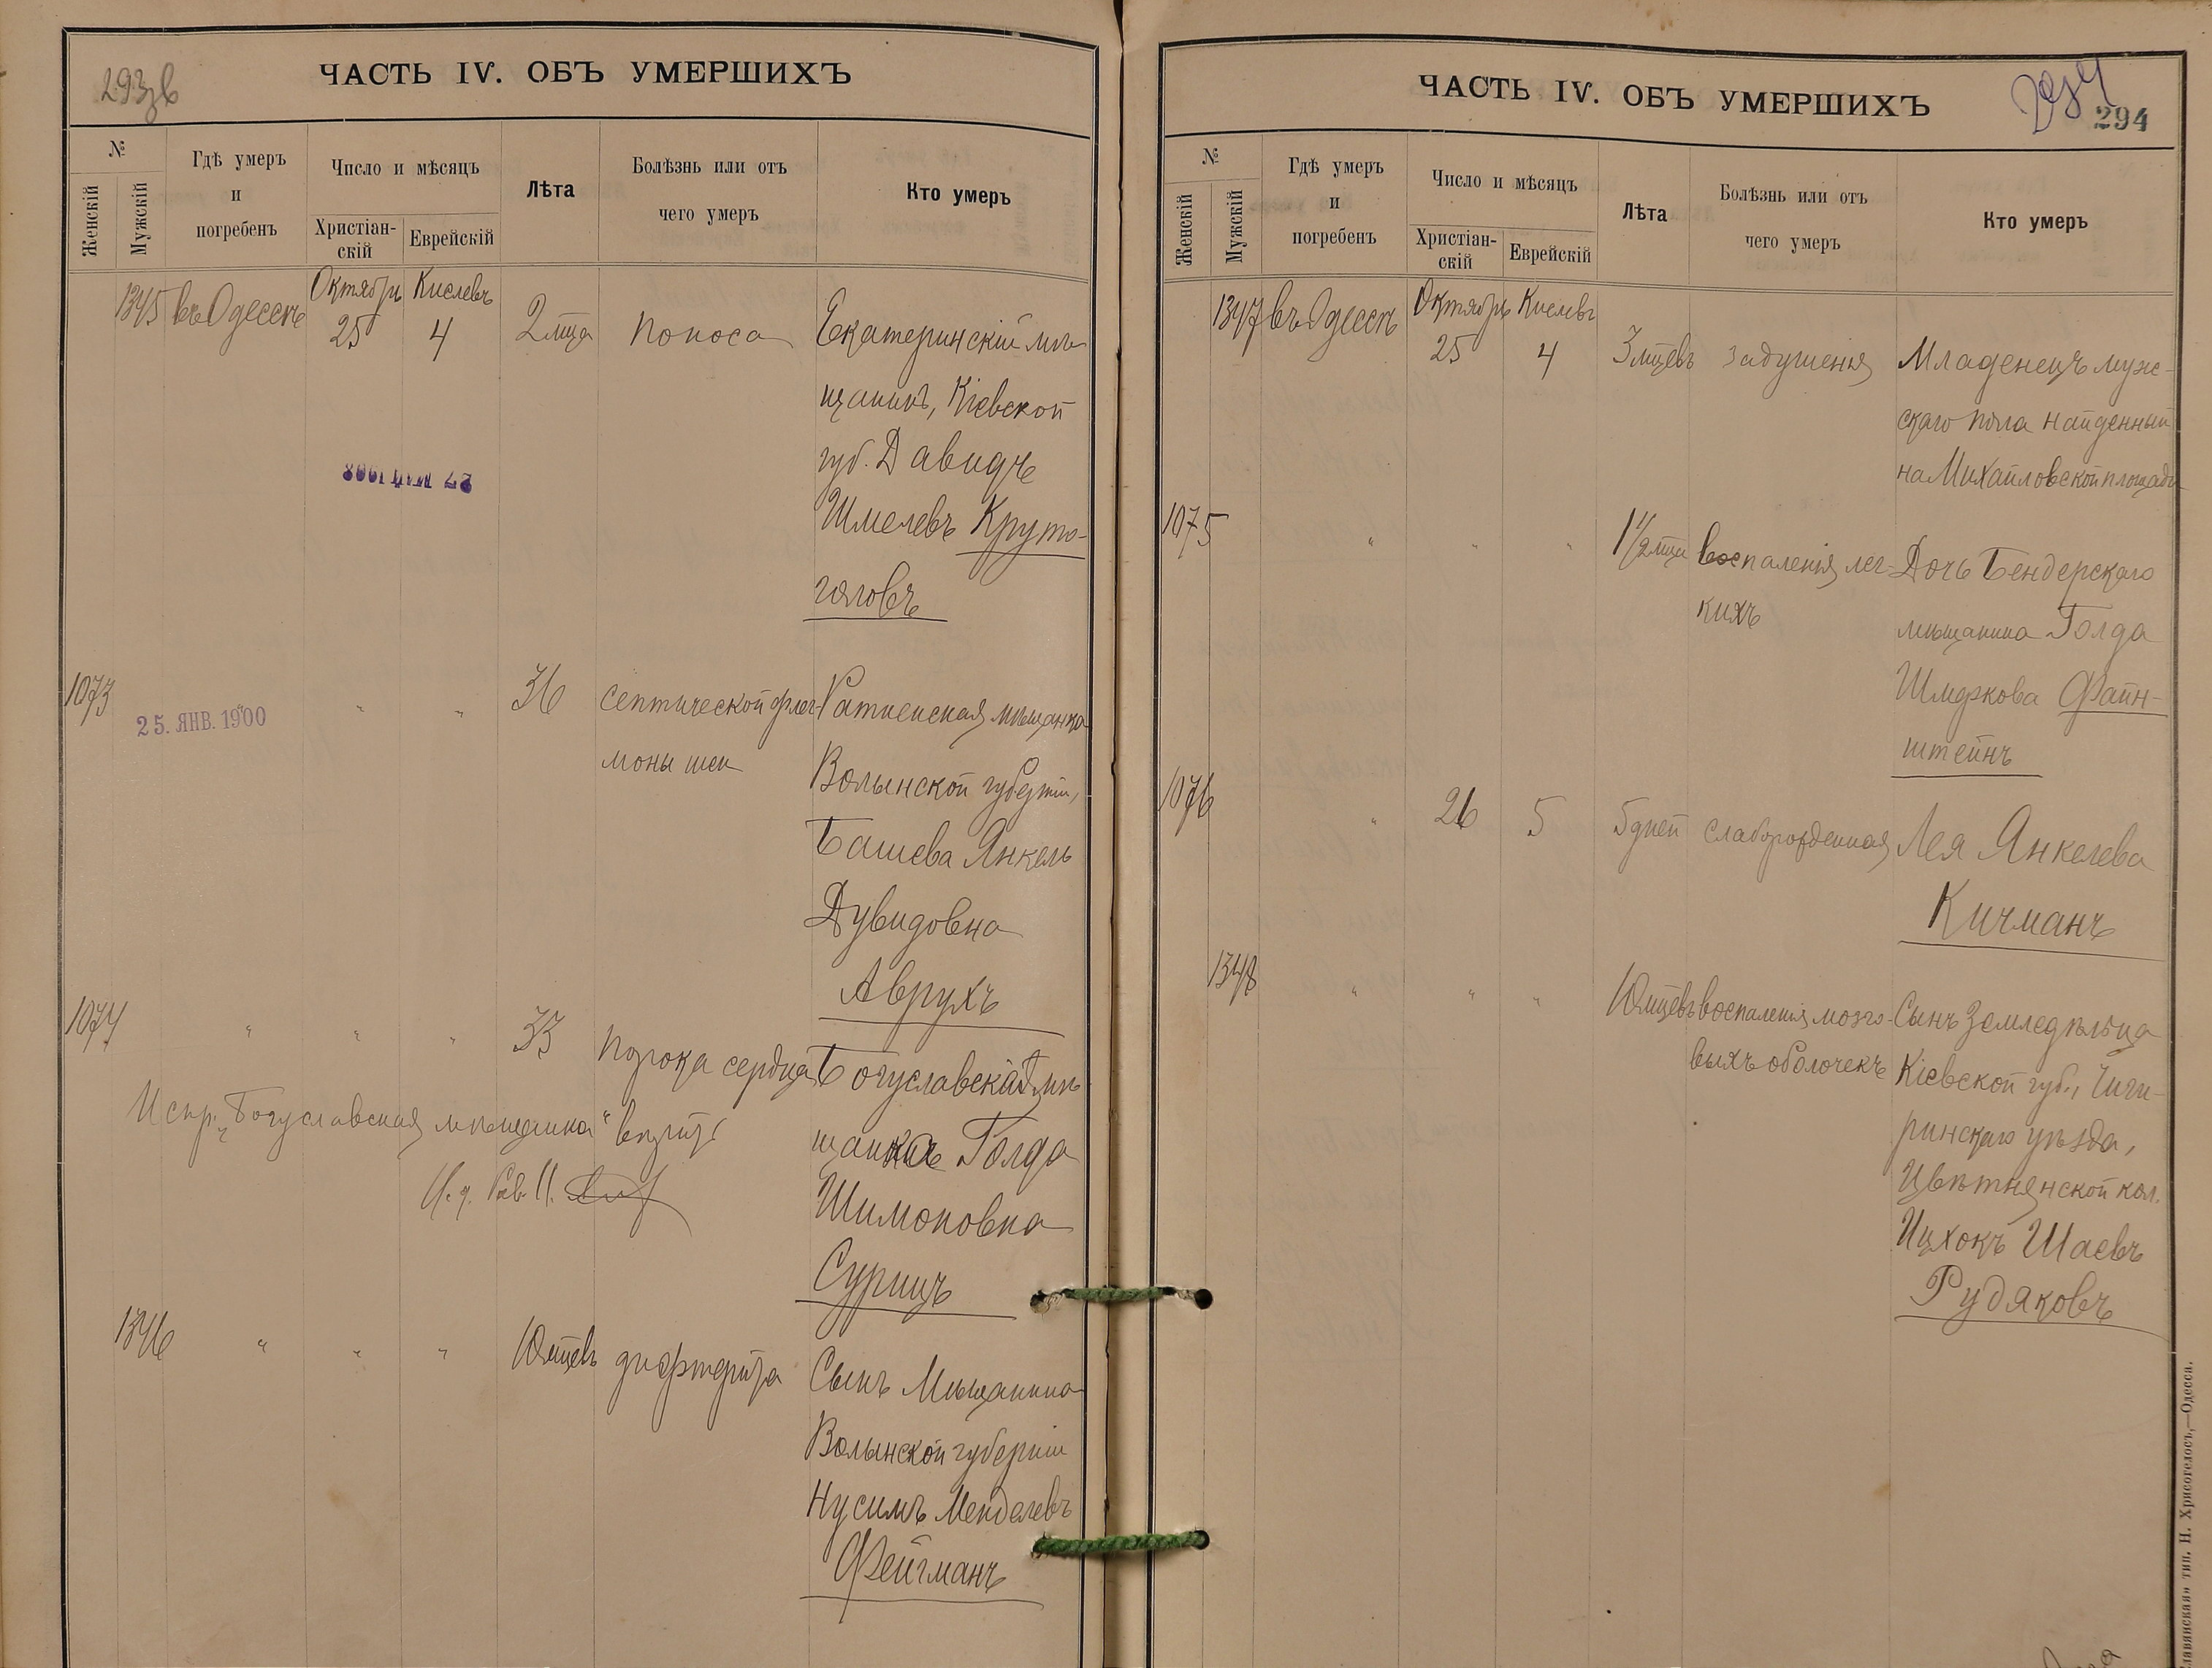 293 об
ЧАСТЬ IV. ОБЪ УМЕРШИХЪ
№
Женскій
Мужскій
Гдѣ умеръ
и
погребенъ
Число и мѣсяцъ
Христіан-
скій
Еврейскій
Лѣта
Болѣзнь или отъ
чего умеръ
Кто умеръ
1345 въ Одессѣ Октябрь Кислевъ
25 4 2 мца поноса Екатеринскій мѣ-
щанинъ, Кіевской
губ. Давидъ
Шмелевъ Круто-
головъ
1073 " " " 36 септической флег- Ратненская мѣщанка
25. ЯНВ. 1900
моны шеи
Волынской губерніи,
Башева Янкель
Дувидовна
Аврухъ
1074 " " " 33 порока сердца Богуславская мѣ-
щанка Голда
Шимоновна
Сурицъ
Испр. "Богуславская мѣщанка"
И. д. Рав.
1346 " " " 10 мцевъ дифтерита Сынъ Мѣщанина
Волынской губерніи
Нусимъ Менделевъ
Фейгманъ
ЧАСТЬ IV. ОБЪ УМЕРШИХЪ
294
№
Женскій
Мужскій
Гдѣ умеръ
и
погребенъ
Число и мѣсяцъ
Христіан-
скій
Еврейскій
Лѣта
Болѣзнь или отъ
чего умеръ
Кто умеръ
1347 въ Одессѣ Октябрь Кислевъ
25 4 3 мцевъ задушенія Младенецъ муж-
скаго пола найденный
на Михайловской площади
1075 " " " 1 1/2 мца воспаленія лег- Дочь Бендерскаго
кихъ
мѣщанина Голда
Шмеркова Файн-
штейнъ
1076 " 26 5 5 дней слаборожденная Лея Янкелева
Кичманъ
1348 " " " 10 мцевъ воспаленія мозго- Сынъ Земледѣльца
выхъ оболочекъ Кіевской губ., Чиги-
ринскаго уѣзда,
Цвѣтнянской кол.
Ицхокъ Шаевъ
Рудяковъ
тип. Н. Хрисогелосъ,—Одесса.